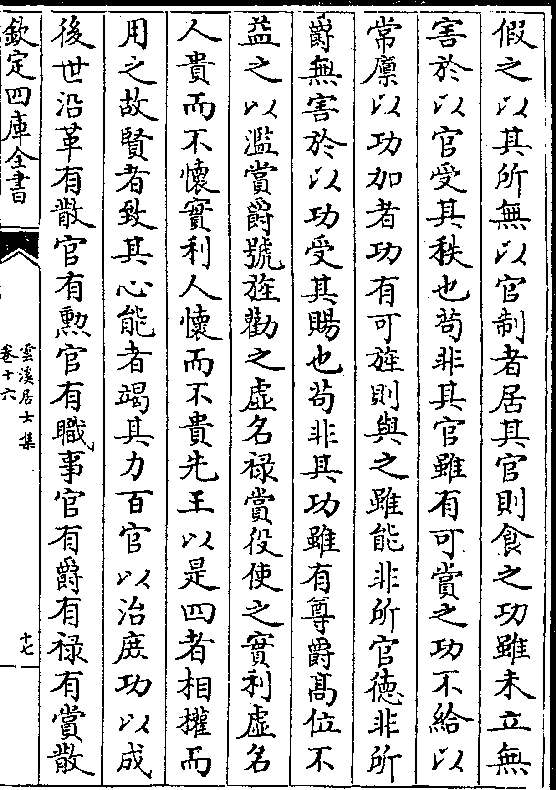 假之以其所無以官制者居其官則食之功雖未立無
害於以官受其秩也苟非其官雖有可賞之功不給以
常廩以功加者功有可旌則與之雖能非所官德非所
爵無害於以功受其賜也苟非其功雖有尊爵高位不
益之以濫賞爵號旌勸之虛名祿賞役使之實利虛名
人貴而不懷實利人懷而不貴先王以是四者相摧而
用之故賢者致其心能者竭其力百官以治庶功以成
後世沿革有散官有勲官有職事官有爵有禄有賞散
欽定四庫全書
雲溪居士集
卷十六
十七